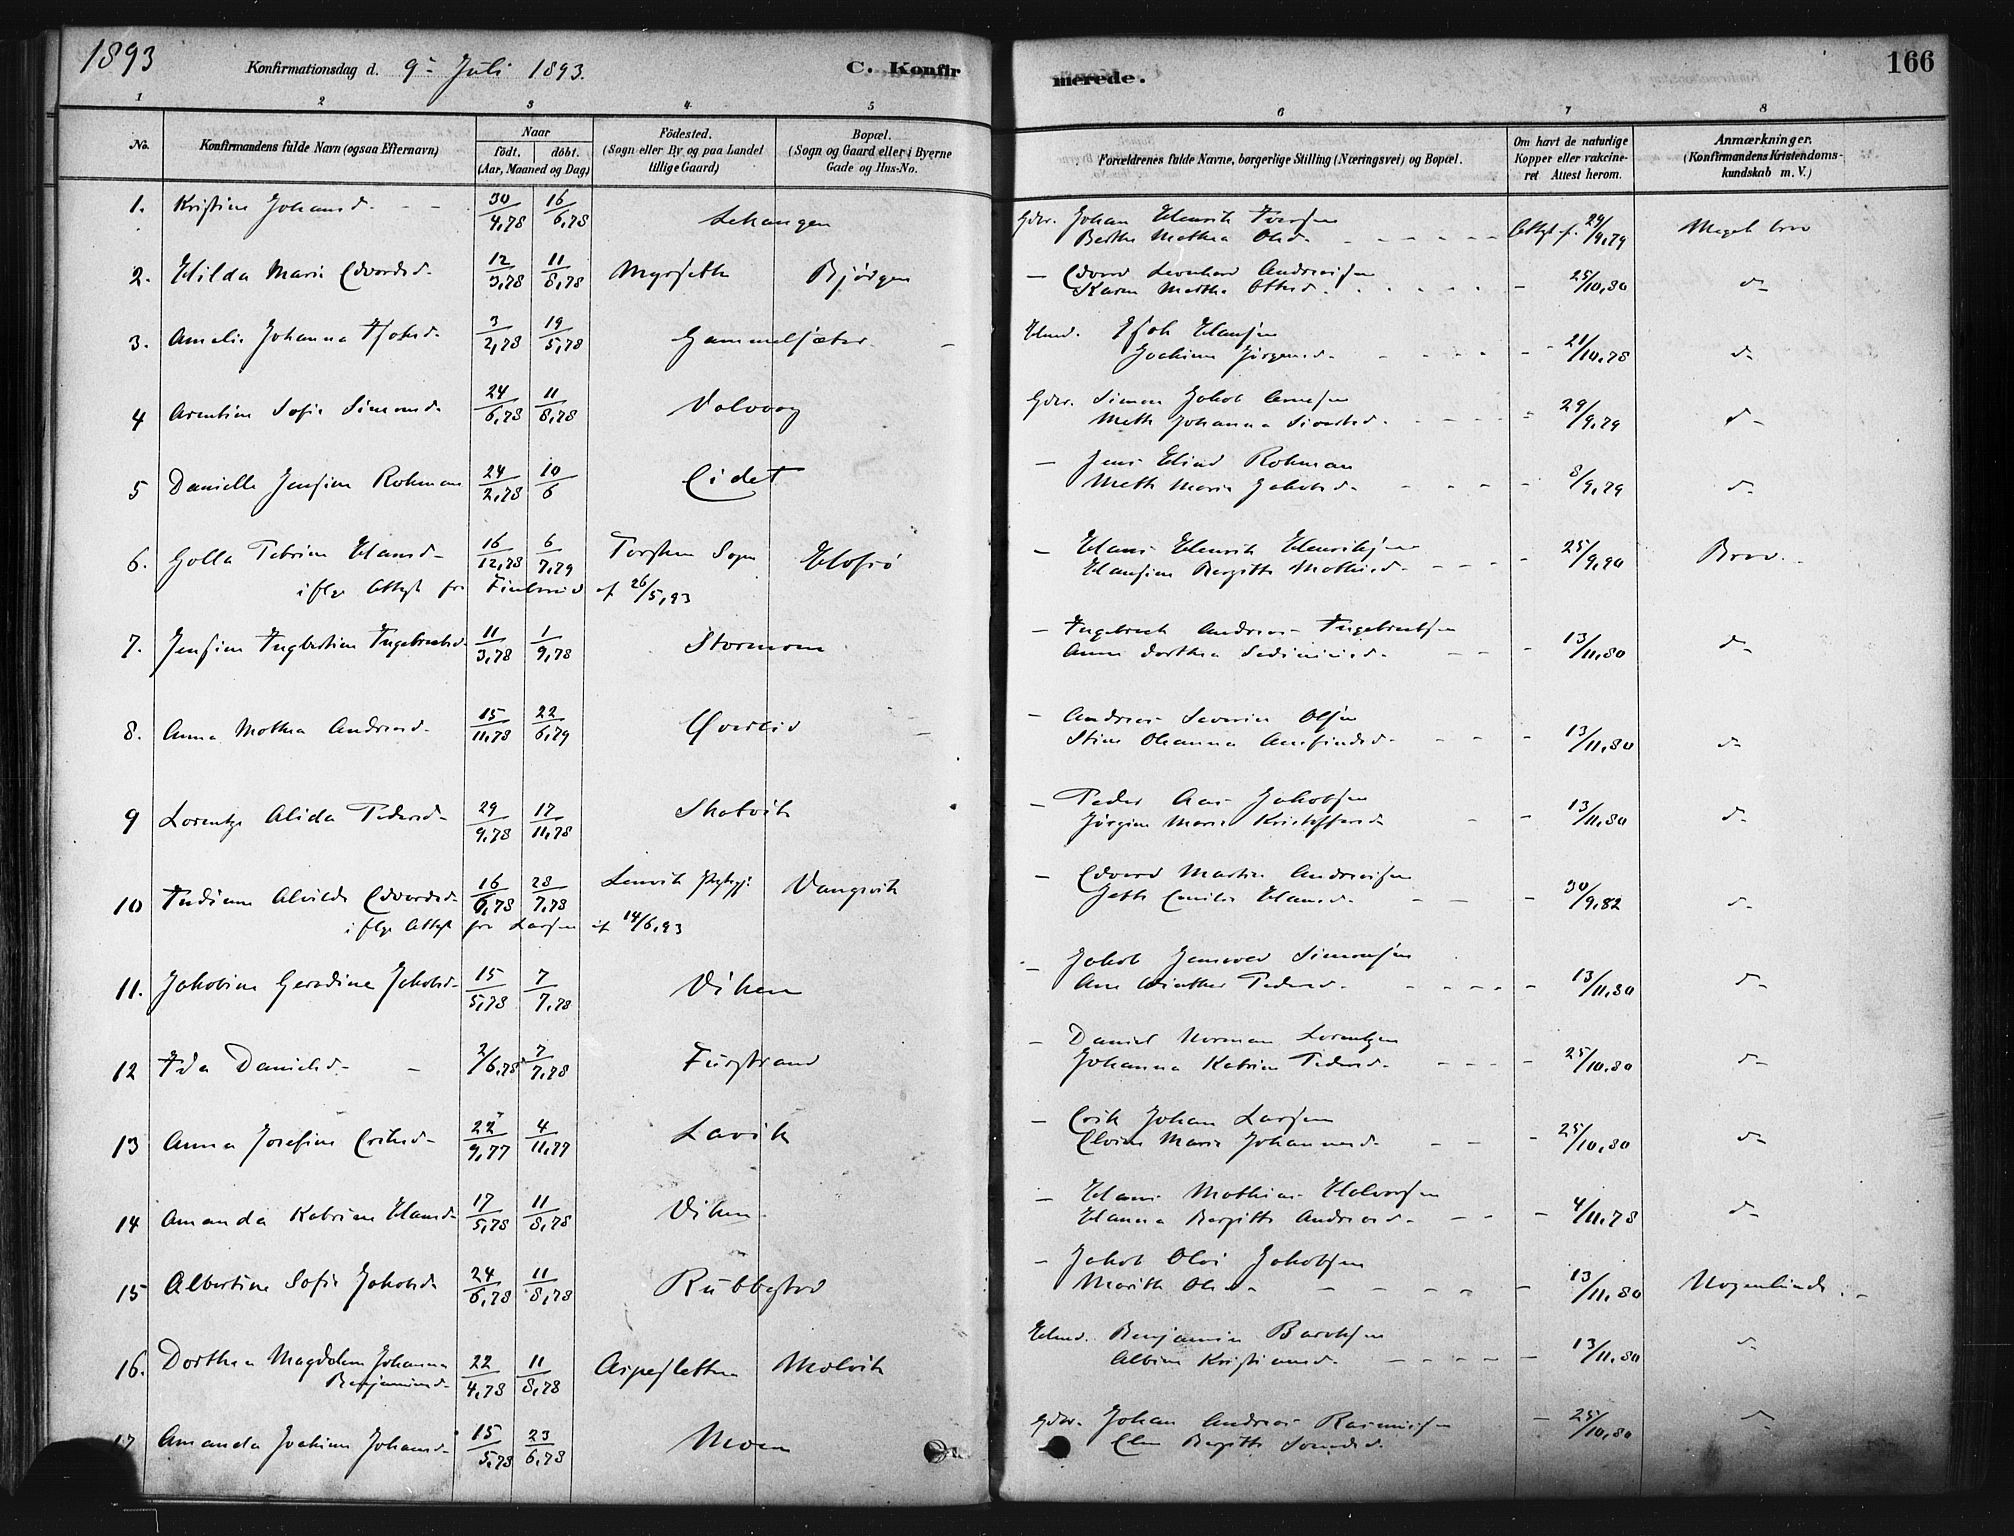 1893
Konfirmationsdag d. 9de Juli 1893.
C. Konfirmerede.
166
1 2 3 4 5 6 7 8
No.
Konfirmandens fulde Navn (ogsaa Efternavn)
Naar
födt. döbt.
(Aar, Maaned og Dag)
Födested.
(Sogn eller By og paa Landet
tillige Gaard)
Bopæl.
(Sogn og Gaard eller i Byerne
Gade og Hus-No.
Forældrenes fulde Navne, borgerlige Stilling (Næringsvei) og Bopæl.
Om havt de naturlige
Kopper eller vakcine-
ret Attest herom.
Anmærkninger.
(Konfirmandens Kristendoms-
kundskab m. V.)
1. Kristine Johansd. 30/4,78 16/6,78 Lekangen Gdbr. Johan Henrik Iversen Attest f. 29/9,79 Meget brav
Berthe Mathea Olsd.
2. Hilda Marie Edvardsd. 12/3,78 11/8,78 Myrseth Bjørgen – Edvard Leonhard Andreassen 25/10,80 do
Karen Martha Ottesd.
3. Amalie Johanna Isaksd. 3/2,78 19/5,78 Gammelsæter Husmd. Isak Hansen 21/10,78 do
Jochime Jørgensd.
4 Arentine Sofie Simonsd. 24/6,78 11/8,78 Valvaag Gdbr. Simon Jakob Arnesen 29/9,79 do
Meth Johanna Sivertsd.
5 Danielle Jensine Rohman 24/2,78 10/6 Eidet – Jens Elind Rohman 8/9,79 do
Meth Maria Jakobsd.
6. Golla Petrine Hansd. 16/12,78 6/7,79 Torsken Sogn Hofsø – Hans Henrik Henriksen 25/9,90 Brav.
Hansine Bergitte Mathisd.
iflge Attest fra af 26/5,93
7. Jensine Ingbertine Ingebretsd. 11/3,78 1/9,78 Stormoen – Ingebreth Andreas Ingebretsen 13/11,80 do
Anne Dorthea
8. Anna Mathea Andreasd. 15/11,78 22/6,79 Øverlid – Andreas Severin Olsen 13/11,80 do
Stine Johanna Arnfindsd.
9 Lorentze Alida Pedersd. 29/9,78 17/11,78 Skatvik – Peder Aas Jakobsen 13/11,80 do
Jørgine Marie Kristoffersd.
10 Indiane Alvilde Edvardsd. 16/6,78 28/7,78 Lenvik Vangsvik – Edvard Martin Andreassen 30/9,82 do
Jette Emilie Hansd.
iflge Attest fra Larsen af 14/6,93
11. Jakobine Gerardine Jakobsd. 15/5,78 7/7,78 Viken – Jakob Simonsen 13/11,80 do
Ane Pedersd.
12 Ida Danielsd. 2/6,78 7/7,78 Furstrand – Daniel Norman Lorentzen 25/10,80 do
Johanna Katrine Pedersd.
13 Anna Josefine Eriksd. 22/9,77 4/11,77 Lavik – Erik Johan Larsen 25/10,80 do
Elvine Marie Johannesd.
14 Amanda Katrine Hansd. 17/5,78 11/8,78 Viken – Hans Mathias Halvorsen 4/11,78 do
Hanna Bergitte Andreasd.
15 Albertine Sofie Jakobsd. 24/6,78 11/8,78 Rubbestad – Jakob Olai Jakobsen 13/11,80 Nogenlunde
Marith Olsd.
16. Dorthea Magdalena Johanna 22/4,78 11/8,78 Aspesletten Molvik Husmd. Benjamin Baroksen 13/11,80 do
Benjaminsd. Albine Kristiansd.
17 Amanda Jochime Johansd. 15/5,78 23/6,78 Moen Gdbr. Johan Andreas Rasmussen 25/10,80 do
Elen Bergitte